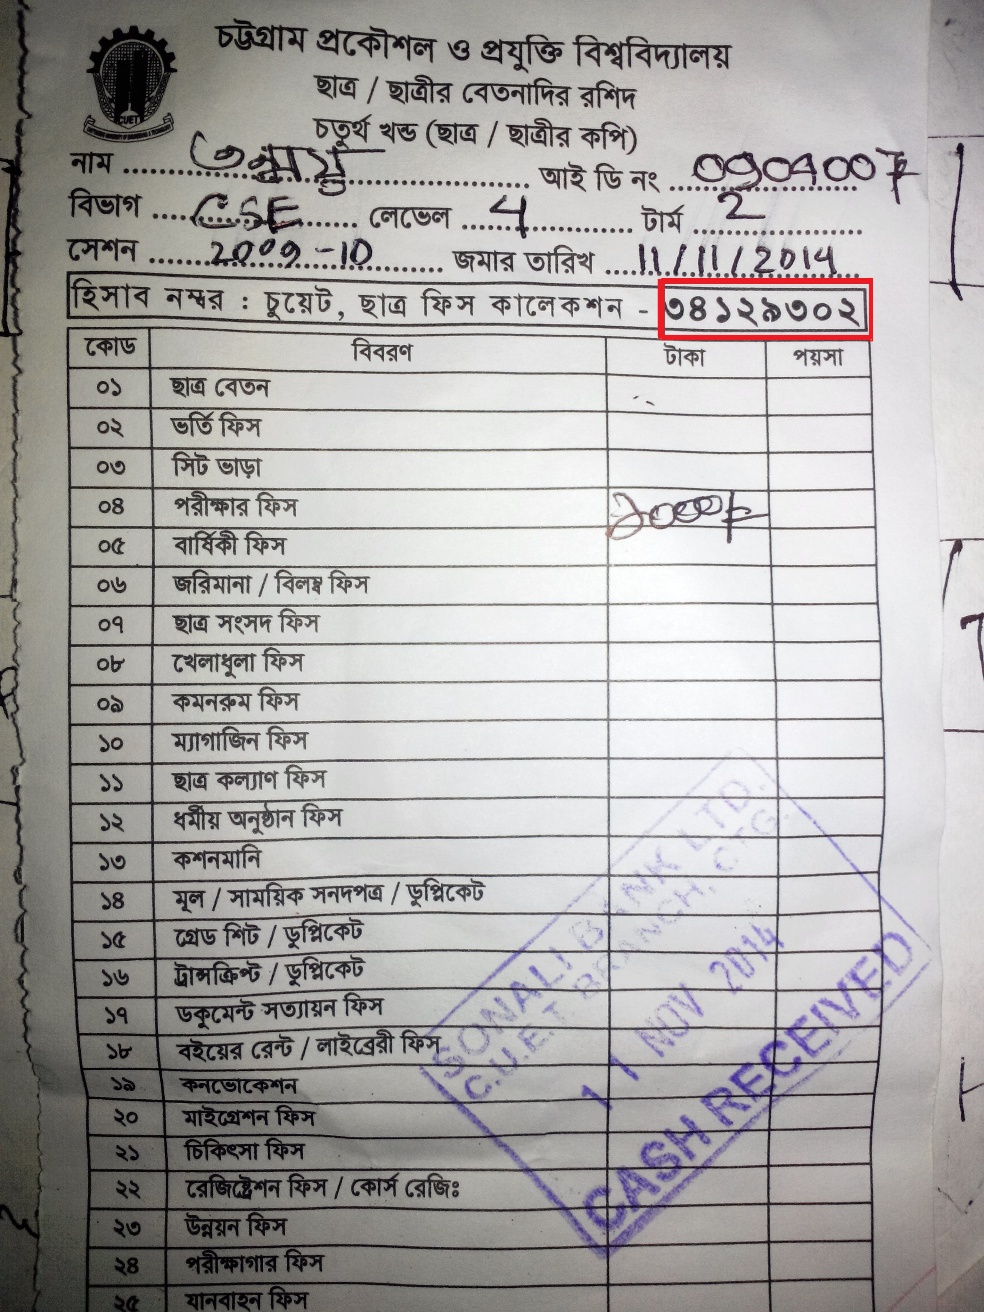 চট্টগ্রাম প্রকৌশল ও প্রযুক্তি বিশ্ববিদ্যালয়
ছাত্র / ছাত্রীর বেতনাদির রশিদ
চতুর্থ খন্ড (ছাত্র / ছাত্রীর কপি)
CUET
নাম তন্ময় আই ডি নং 0904007
বিভাগ CSE লেভেল 4 টার্ম 2
সেশন 2009-10 জমার তারিখ 11/11/2014
হিসাব নম্বর : চুয়েট, ছাত্র ফিস কালেকশন - ৩৪১২৯৩০২
কোড বিবরণ টাকা পয়সা
০১ ছাত্র বেতন
০২ ভর্তি ফিস
০৩ সিট ভাড়া
০৪ পরীক্ষার ফিস
০৫ বার্ষিকী ফিস
০৬ জরিমানা / বিলম্ব ফিস
০৭ ছাত্র সংসদ ফিস
০৮ খেলাধুলা ফিস
০৯ কমনরুম ফিস
১০ ম্যাগাজিন ফিস
১১ ছাত্র কল্যাণ ফিস
১২ ধর্মীয় অনুষ্ঠান ফিস
১৩ কশনমানি
১৪ মূল / সাময়িক সনদপত্র / ডুপ্লিকেট
১৫ গ্রেড শিট / ডুপ্লিকেট
১৬ ট্রান্সক্রিপ্ট / ডুপ্লিকেট
১৭ ডকুমেন্ট সত্যায়ন ফিস
১৮ বইয়ের রেন্ট / লাইব্রেরী ফিস
১৯ কনভোকেশন
২০ মাইগ্রেশন ফিস
২১ চিকিৎসা ফিস
২২ রেজিষ্ট্রেশন ফিস / কোর্স রেজিঃ
২৩ উন্নয়ন ফিস
২৪ পরীক্ষাগার ফিস
২৫ যানবাহন ফিস
SONALI BANK LTD.
C.U.E.T. BRANCH, CTG.
11 NOV 2014
CASH RECEIVED